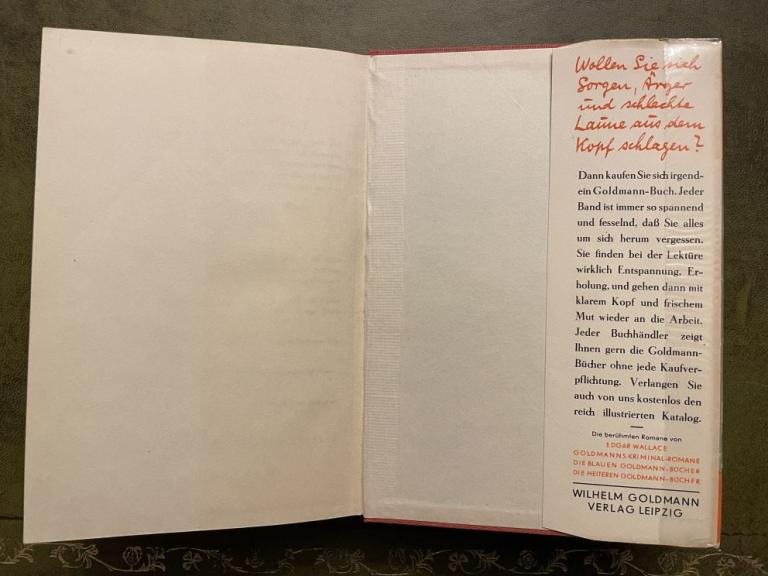 Wollen Sie sich
Sorgen, Ärger
und schlechte
Laune aus dem
Kopf schlagen?
Dann kaufen Sie sich irgend-
ein Goldmann-Buch. Jeder
Band ist immer so spannend
und fesselnd, daß Sie alles
um sich herum vergessen.
Sie finden bei der Lektüre
wirklich Entspannung, Er-
holung, und gehen dann mit
klarem Kopf und frischem
Mut wieder an die Arbeit.
Jeder Buchhändler zeigt
Ihnen gern die Goldmann-
Bücher ohne jede Kaufver-
pflichtung. Verlangen Sie
auch von uns kostenlos den
reich illustrierten Katalog.
Die berühmten Romane von
EDGAR WALLACE
GOLDMANNS KRIMINAL-ROMANE
DIE BLAUEN GOLDMANN-BÜCHER
DIE HEITEREN GOLDMANN-BÜCHER
WILHELM GOLDMANN
VERLAG LEIPZIG